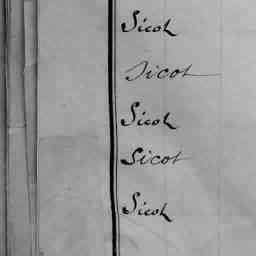 Sicot
Sicot
Sicot
Sicot
Sicot